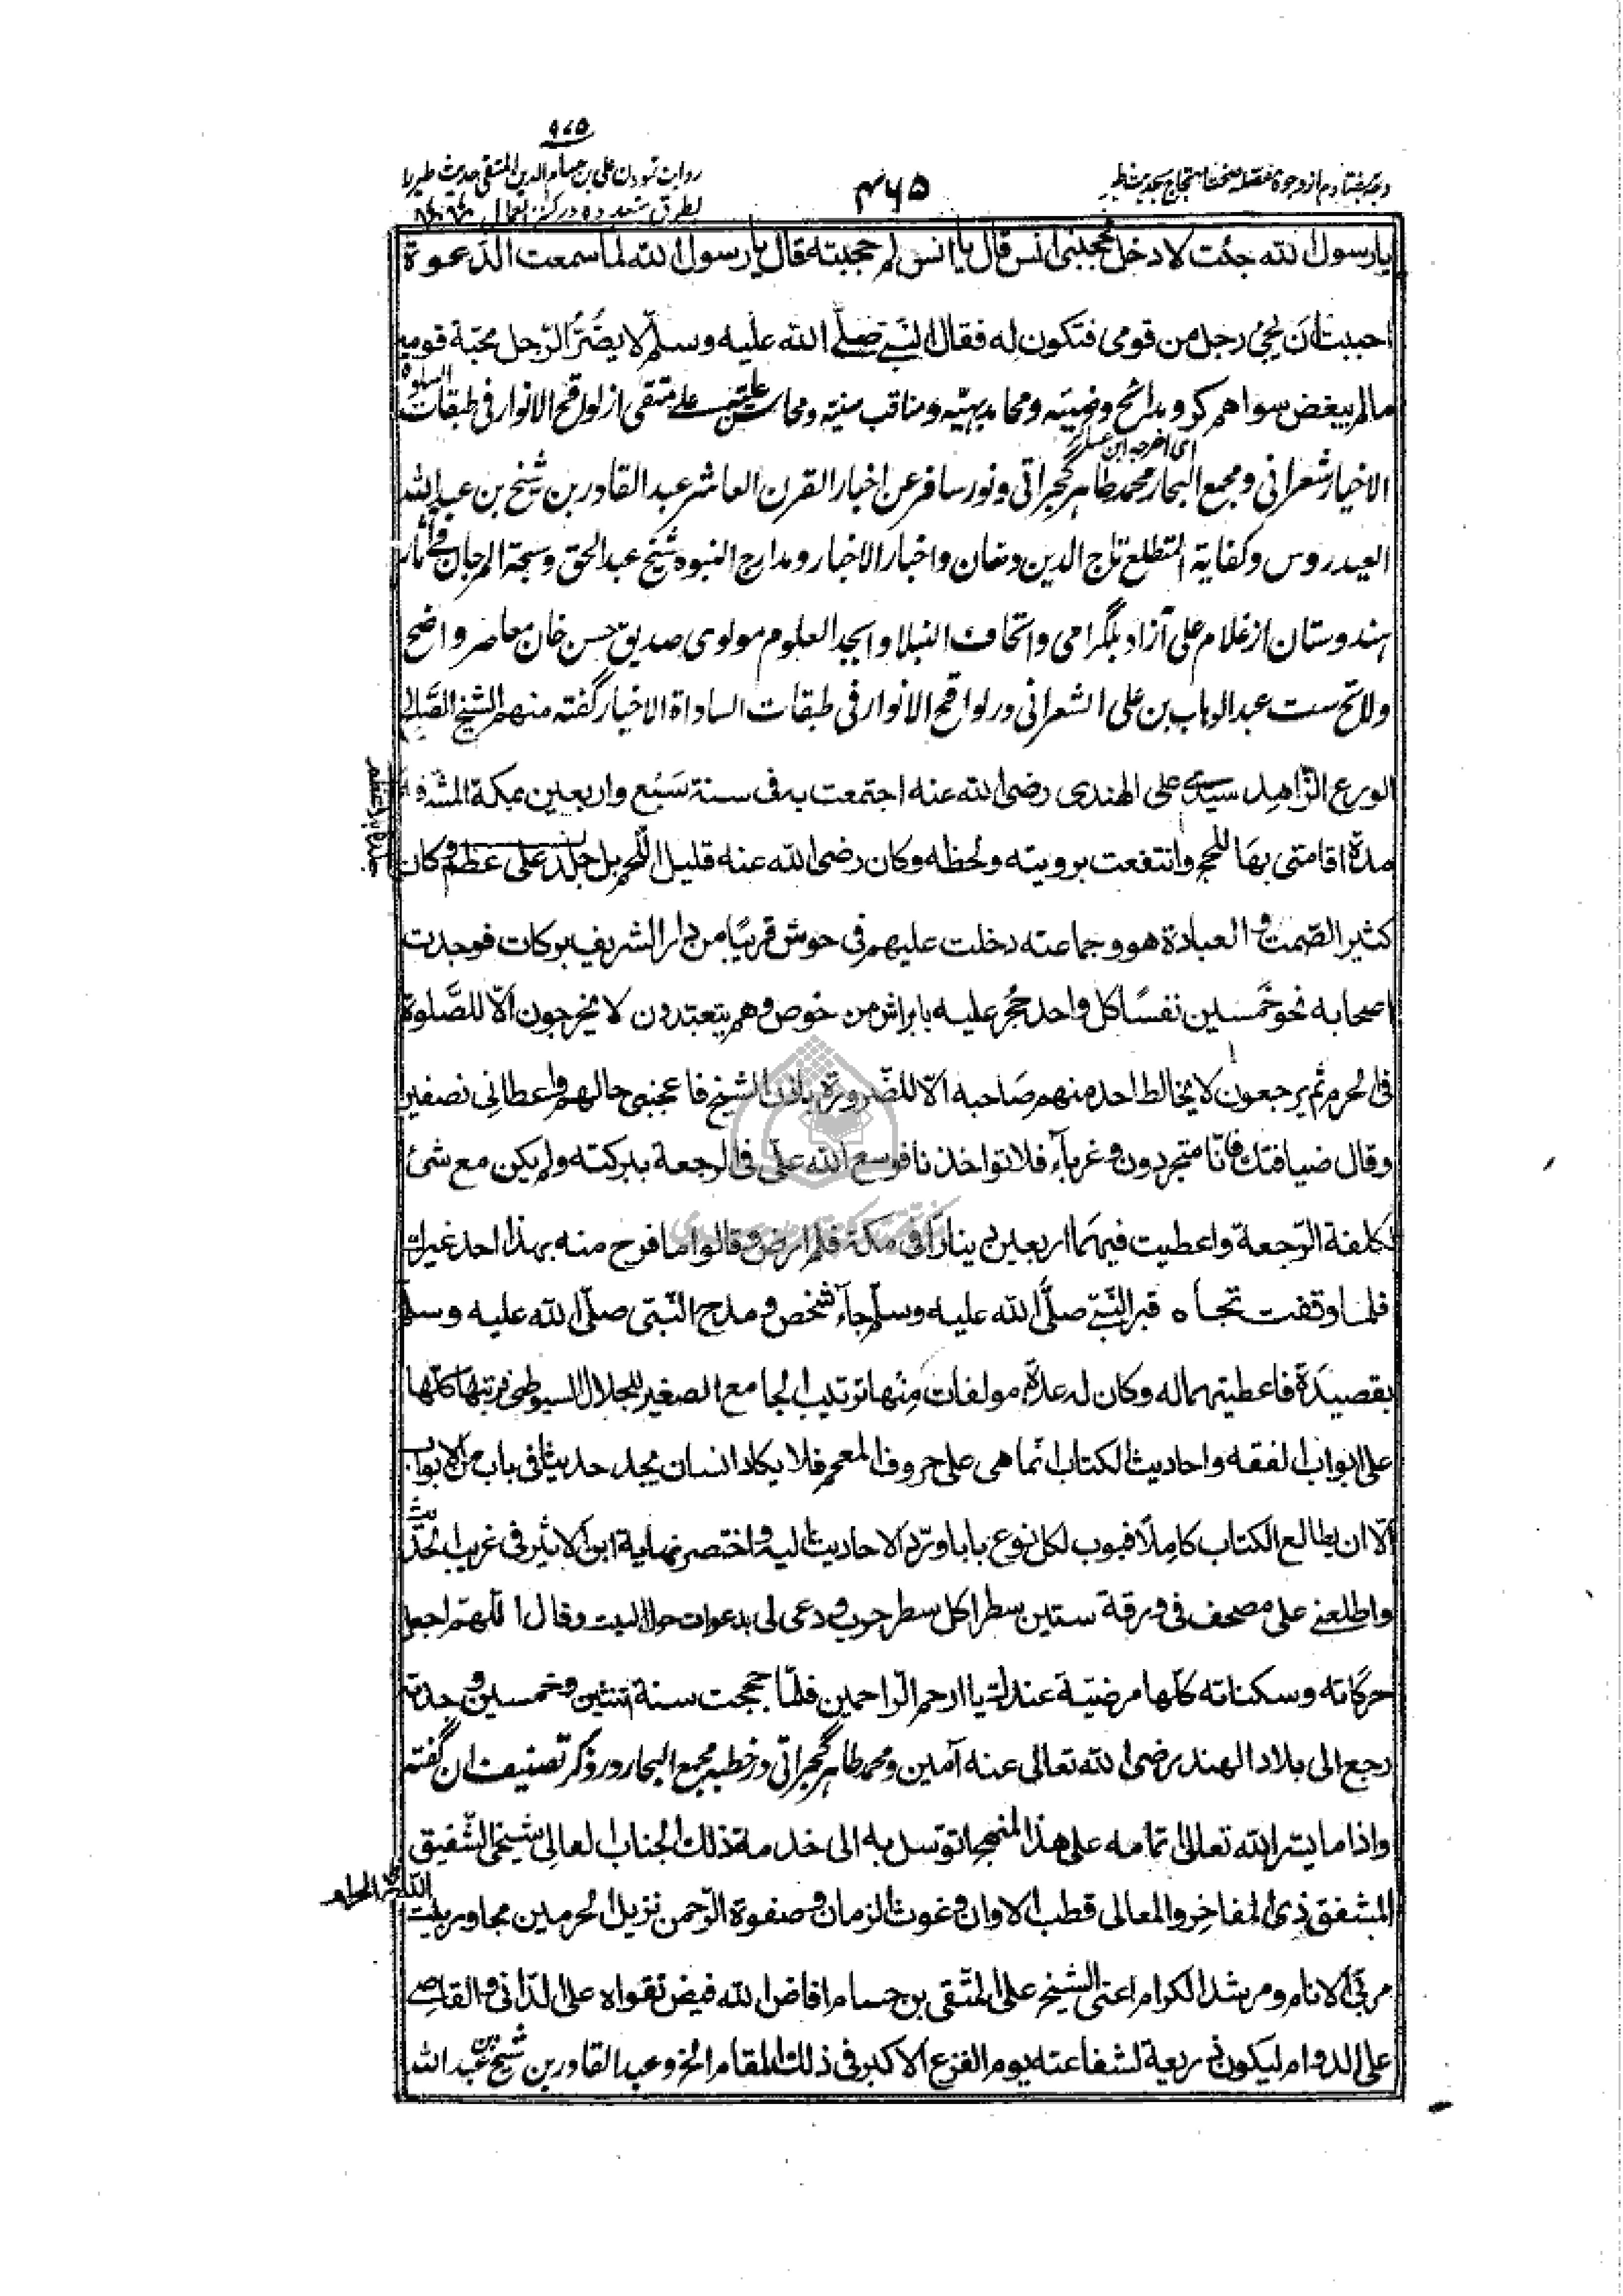 ۹۷۵
وجه هفتادم از وجوه مفصله صحت احتجاج بحدیث طیر
۴۶۵
روایت نمودن علی بن حسام الدین المتقی حدیث طیر را
بطرق متعدده در کنز العمال
یا رسول الله جئت لادخل فحجبنی انس قال یا انس لم حجبته قال یا رسول الله لما سمعت الدعوة
احببت ان یجئ رجل من قومی فتکون له فقال النبی صلّی الله علیه وسلّم لا یضرّ الرّجل محبّة قومه
مالم یبغض سواهم کر و مدائح وضیئه ومحامد بهیّه ومناقب سنیّه ومحاسن علیّه علی متقی از لواقح الانوار فی طبقات السادة
ای اخرجه ابن عساکر
الاخیار شعرانی و مجمع البحار محمد طاهر گجراتی و نور سافر عن اخبار القرن العاشر عبد القادر بن شیخ بن عبد الله
العیدروس وکفایة المتطلع تاج الدین دهان واخبار الاخیار و مدارج النبوه شیخ عبد الحق وسبحة المرجان فی آثار
هندوستان از غلام علی آزاد بلگرامی و اتحاف النبلا وابجد العلوم مولوی صدیق حسن خان معاصر واضح
ولائح ست عبد الوهاب بن علی الشعرانی در لواقح الانوار فی طبقات الساداة الاخیار گفته منهم الشیخ الصالح
الورع الزّاهد سیّدی علی الهندی رضی الله عنه اجتمعت به فی سنة سَبْع واربعین بمکة المشرفة
مدة اقامتی بها للحج وانتفعت برویته ولحظه وکان رضی الله عنه قلیل اللحم بل جلد علی عظم وکان
جلدا بلا عظم
کثیر الصّمت والعبادة هو وجماعته دخلت علیهم فی حوش قریبًا من دار الشریف برکات فوجدت
اصحابه نحو خمسین نفسًا کل واحد حجر علیه بابراش من خوص وهم یتعبّدون لا یخرجون الّا للصّلوة
فی الحرم ثم یرجعون لا یخالط احد منهم صاحبه الّا للضّرورة باذن الشیخ فاعجبنی حالهم واعطانی نصفین
وقال ضیافتک فانّا متجردون وغرباء فلا تواخذنا فوسع الله علیّ فی الرجعة ببرکته ولم یکن مع شئ
لکلفة الرّجعة واعطیت فیهما اربعین دینارًا فی مکة فلم ارض وقالوا ما فرح منه بهذا احد غیرک
فلما وقفت تجاه قبر النّبی صلّی الله علیه وسلّم جآء شخص ومدح النّبی صلّی الله علیه وسلم
بقصیدة فاعطیتهما له وکان له عدّة مولفات منها ترتیب الجامع الصغیر للجلال السیوطی رتبها کلّها
علی ابواب الفقه واحادیث الکتاب انّما هی علی حروف المعجم فلا یکاد انسان یجد حدیثا فی باب من الابواب
الّا ان یطالع الکتاب کاملًا فبوب لکل نوع بابا و ردّ الاحادیث الیه واختصر نهایة ابن الاثیر فی غریب الحدیث
واطلعنی علی مصحف فی ورقة ستین سطرا کل سطر حزب ودعی لی بدعوات حول البیت وقال اللّهم اجعل
حرکاته وسکناته کلّها مرضیّة عندک یا ارحم الرّاحمین فلمّا حججت سنة اثنتین وخمسین وجدته
رجع الی بلاد الهند رضی الله تعالی عنه آمین و محمد طاهر گجراتی در خطبه مجمع البحار در ذکر تصنیف ان گفته
واذا ما یسّر الله تعالی اتمامه علی هذا المنهج اتوسل به الی خدمة ذلک الجناب العالی شیخی الشّفیق
المشفق ذی المفاخر والمعالی قطب الاوان وغوث الزمان وصفوة الرّحمن نزیل الحرمین مجاور بیت الله الحرام
مربّی الانام ومرشد الکرام اعنی الشیخ علی المتّقی بن حسام افاض الله فیض تقواه علی الدّانی والقاصی
علی الدوام لیکون ذریعة لشفاعته یوم الفزع الاکبر فی ذلک المقام الخ و عبد القادر بن شیخ بن عبد الله